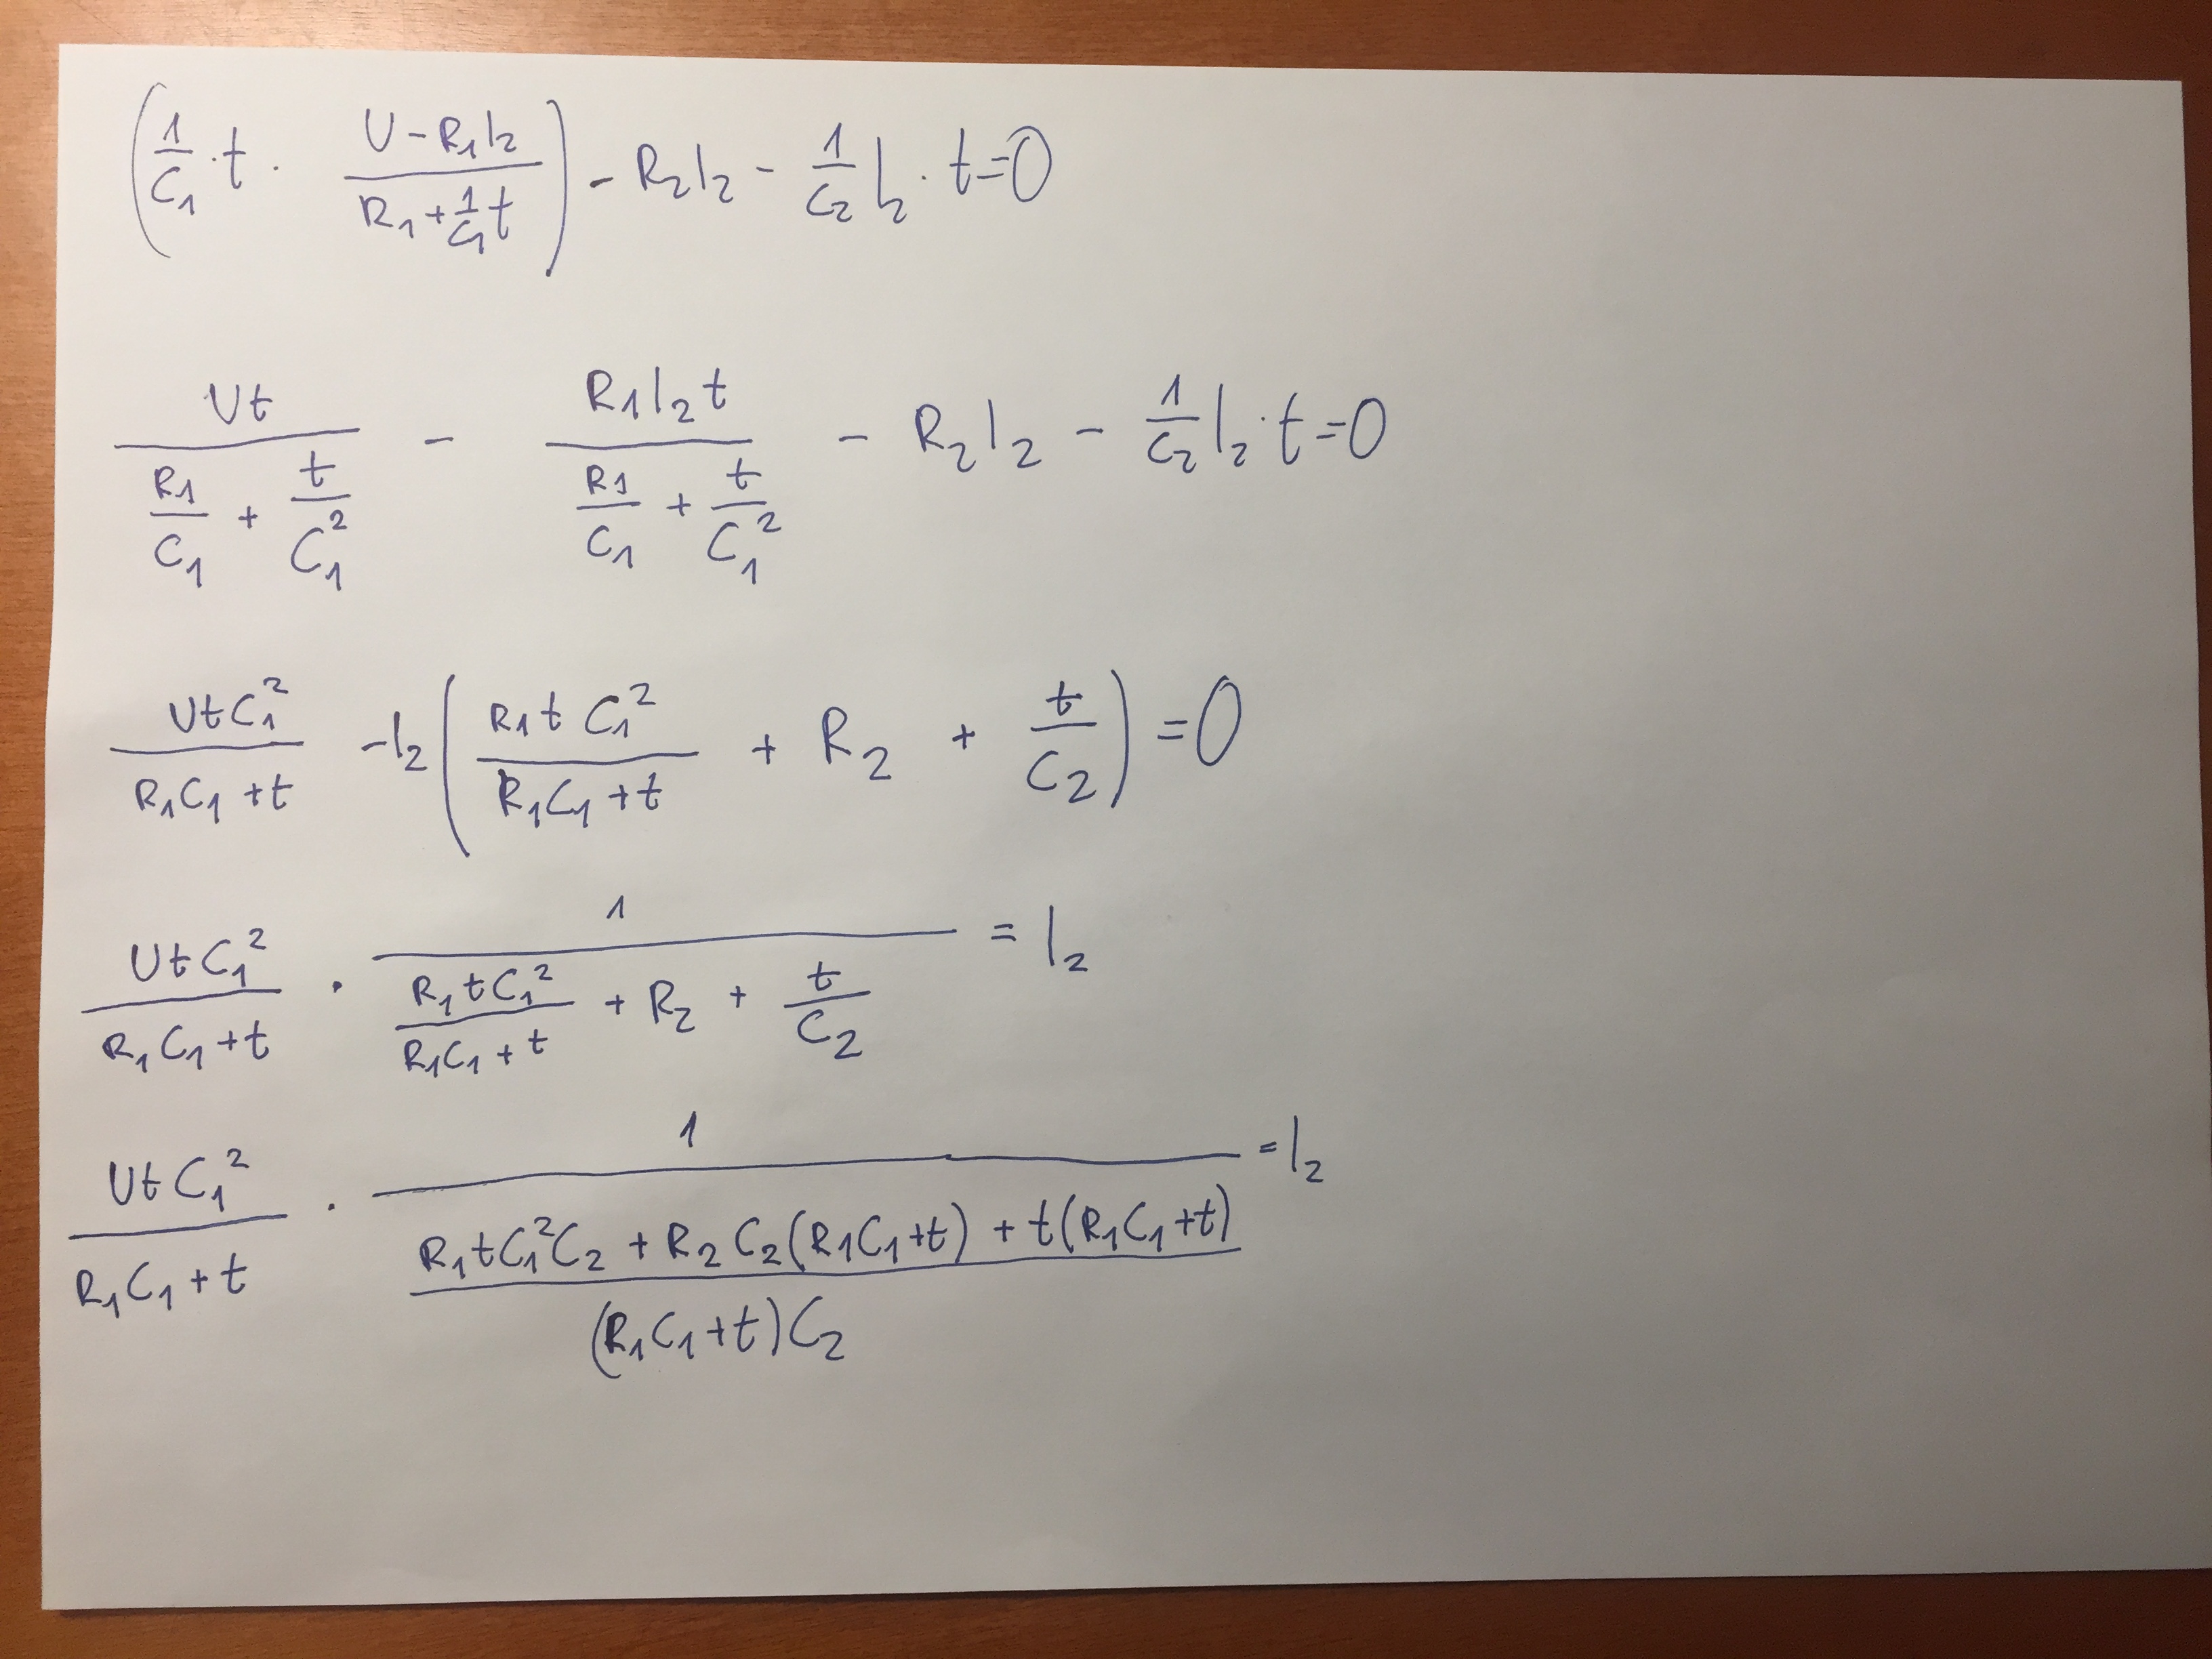 (1/C₁ · t · (U - R₁I₂)/(R₁ + 1/C₁ t)) - R₂I₂ - 1/C₂ I₂ · t = 0
Ut/(R₁/C₁ + t/C₁²) - R₁I₂t/(R₁/C₁ + t/C₁²) - R₂I₂ - 1/C₂ I₂ · t = 0
UtC₁²/(R₁C₁ + t) - I₂(R₁tC₁²/(R₁C₁ + t) + R₂ + t/C₂) = 0
UtC₁²/(R₁C₁ + t) · 1/(R₁tC₁²/(R₁C₁ + t) + R₂ + t/C₂) = I₂
UtC₁²/(R₁C₁ + t) · 1/((R₁tC₁²C₂ + R₂C₂(R₁C₁ + t) + t(R₁C₁ + t))/((R₁C₁ + t)C₂)) = I₂